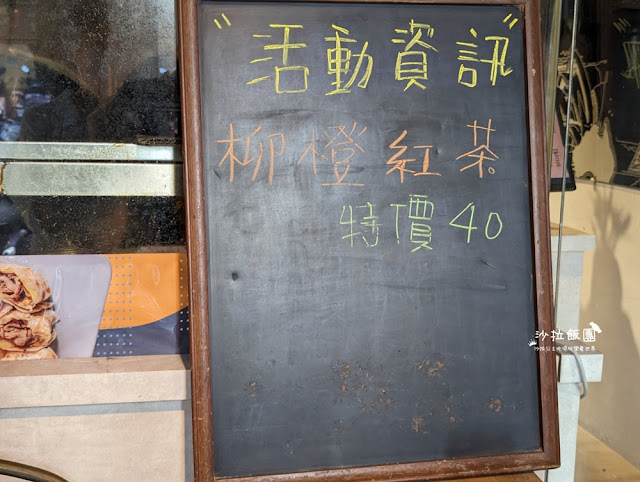 "活動資訊"
柳橙紅茶
特價40
沙拉飯團